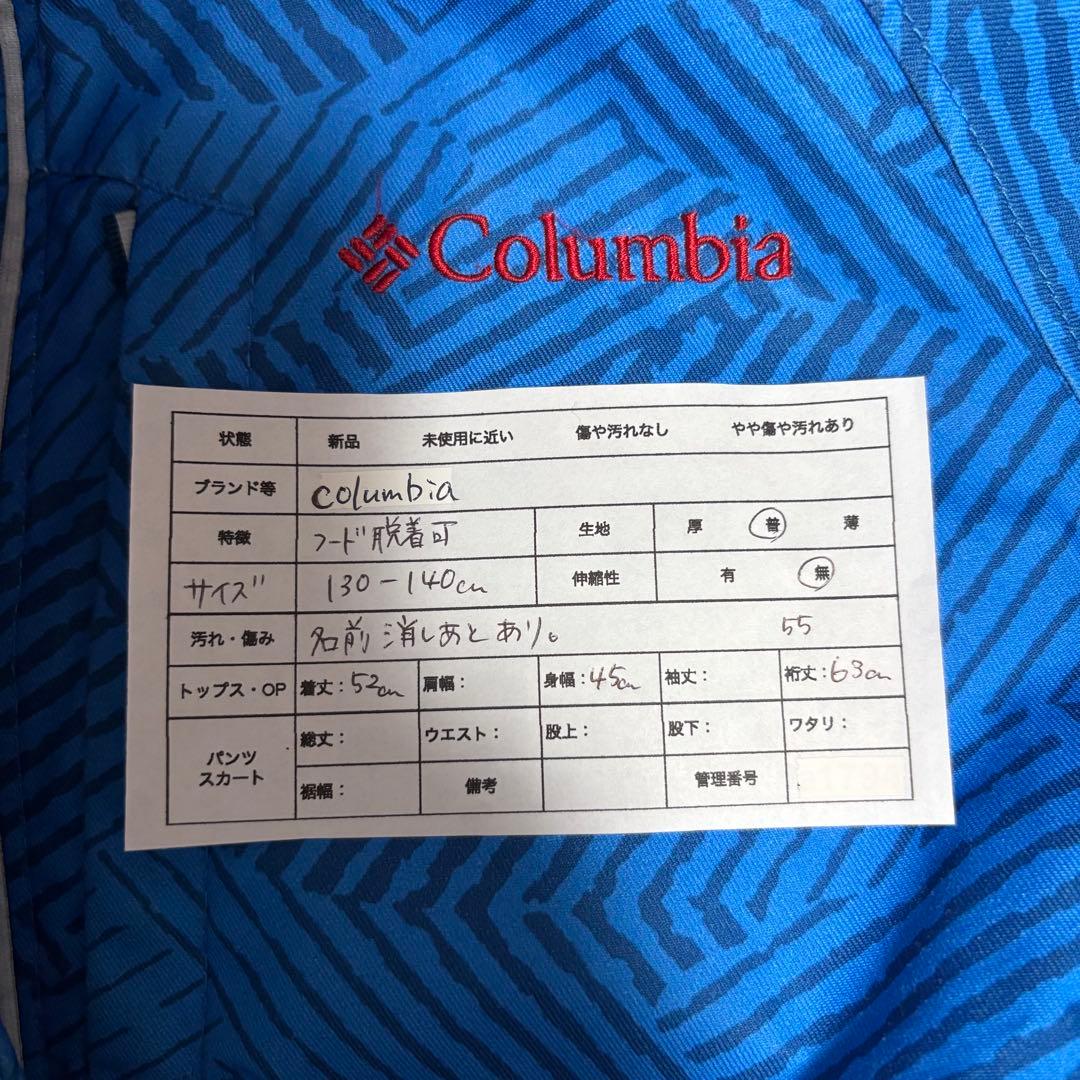 Columbia
状態 新品 未使用に近い 傷や汚れなし やや傷や汚れあり
ブランド等 columbia
特徴 フード脱着可 生地 厚 普 薄
サイズ 130-140cm 伸縮性 有 無
汚れ・傷み 名前消しあとあり。 55
トップス・OP 着丈:52cm 肩幅: 身幅:45cm 袖丈: 裄丈:63cm
パンツ スカート 総丈: ウエスト: 股上: 股下: ワタリ:
裾幅: 備考 管理番号